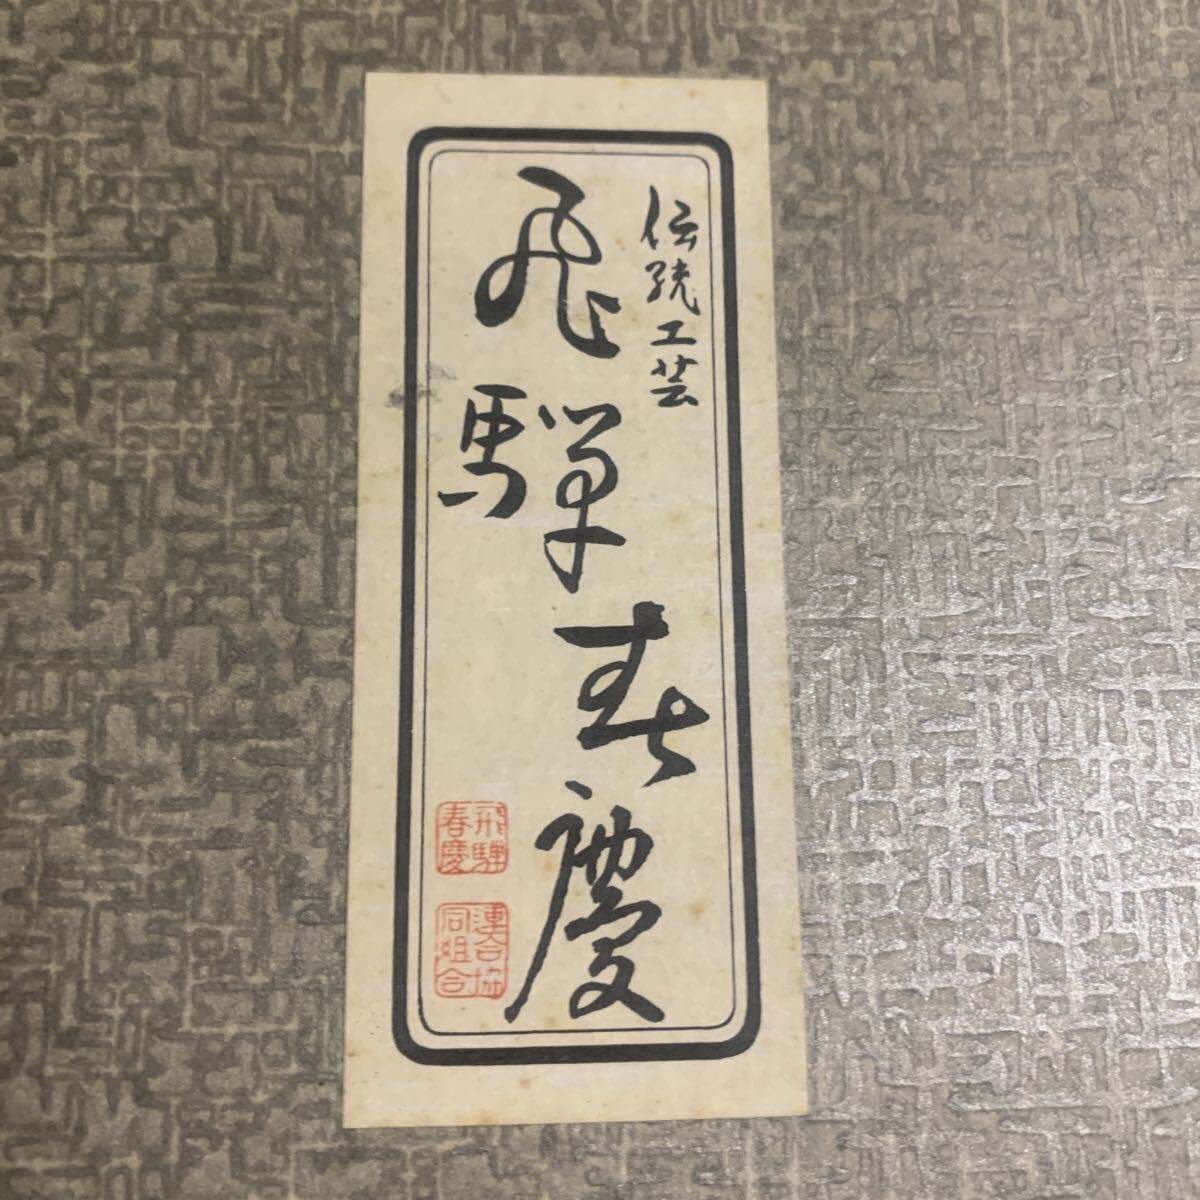 伝統工芸
飛騨春慶
飛騨
春慶
連合協
同組合